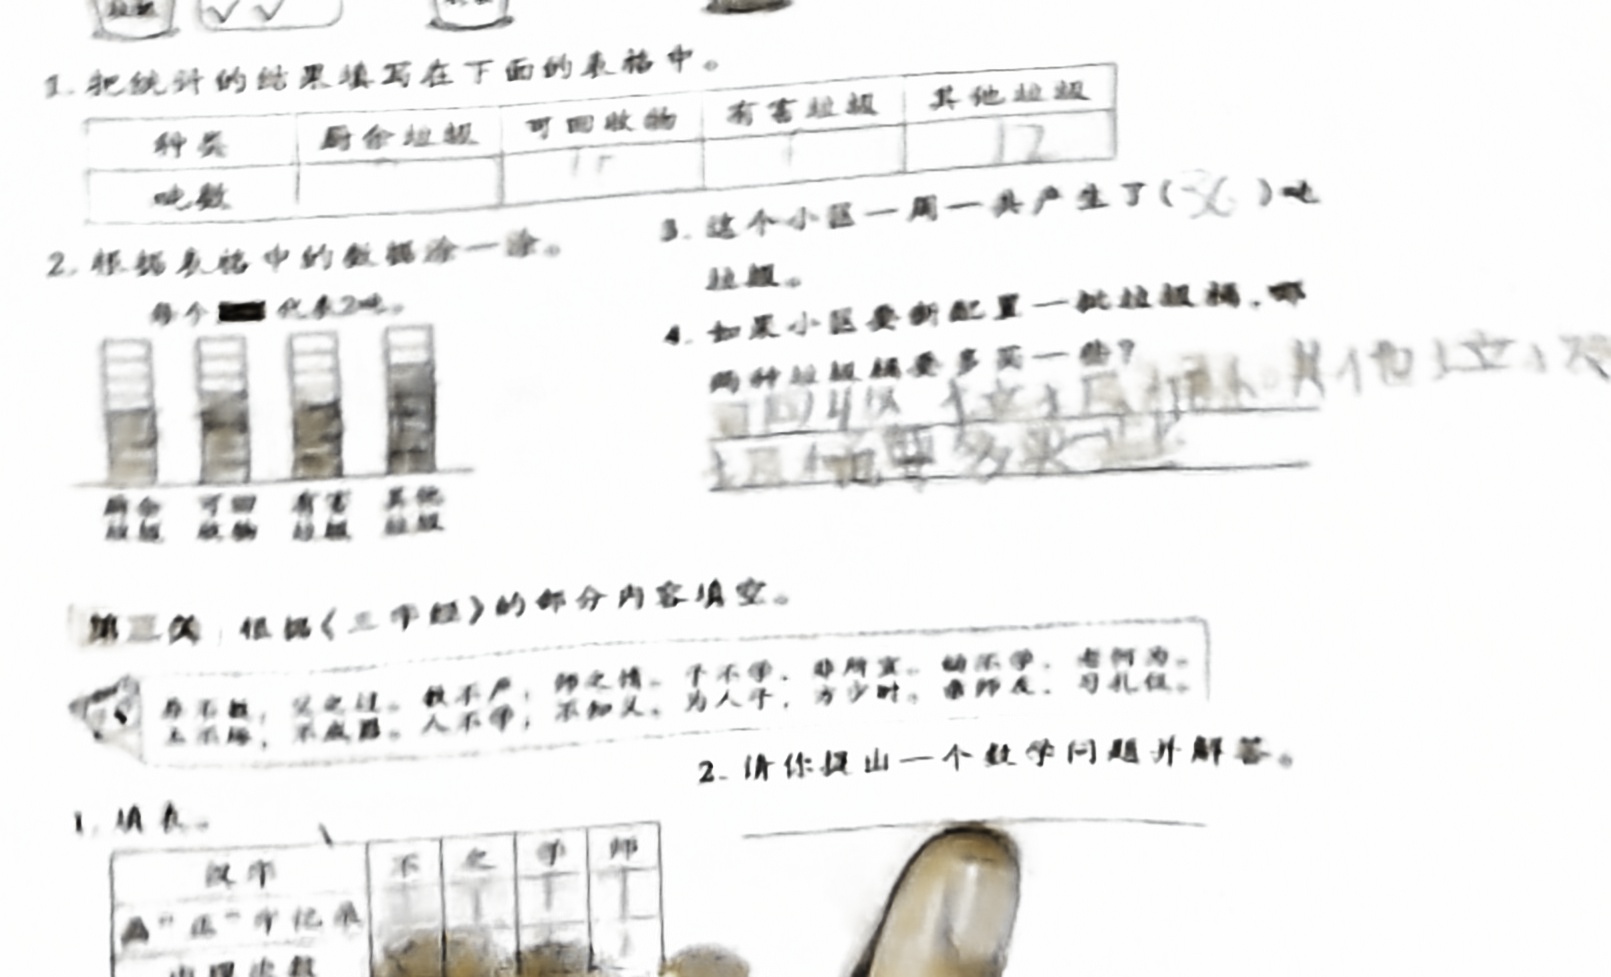 1. 把统计的结果填写在下面的表格中。
种类 厨余垃圾 可回收物 有害垃圾 其他垃圾
吨数 12
2. 根据表格中的数据涂一涂。
每个 代表2吨。
厨余垃圾 可回收物 有害垃圾 其他垃圾
3. 这个小区一周一共产生了( )吨
垃圾。
4. 如果小区要新配置一批垃圾桶,哪
两种垃圾桶要多买一些?
第三关 根据《三字经》的部分内容填空。
养不教,父之过。教不严,师之惰。子不学,非所宜。幼不学,老何为。
玉不琢,不成器。人不学,不知义。为人子,方少时。亲师友,习礼仪。
1. 填表。
汉字 不 之 学 师
用“正”字记录
出现次数
2. 请你提出一个数学问题并解答。